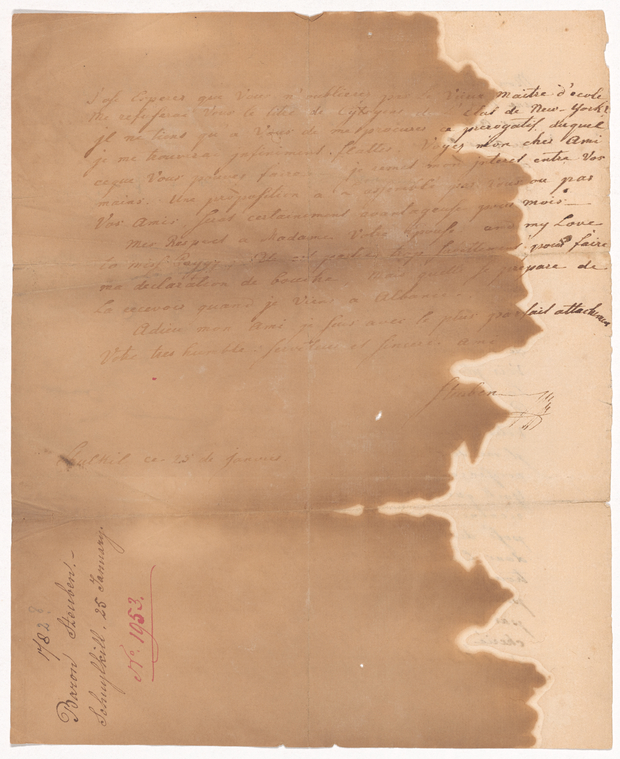 J'ose Espérer que Vous n'oublierez pas le Vieux maitre d'ecole
Me refuserai Vous le titre de Cytoyen de l'Etat de New-York?
jl ne tiens qu'a Vous de me procurer ce prerogatif duquel
je me trouverai infiniment flatté. Voyez mon cher Ami
ceque Vous pouvez faire. je remet mon interet entre Vos
mains. Une proposition a l'assemblé par Vous ou par
Vos Amis Serat certainement avantageuse pour moi
Mes Respect a Madame Votre Epouse and my Love
to miss Peggy, S'il est possible pour faire
ma declaration de bouche quelle Se prepare de
La recevoir quand je Viens a Albanie.
Adieu mon Ami je suis avec le plus parfait attachement
Votre tres humble Serviteur et sincere Ami
Steuben
Scylkil ce 25 de Janvier
1782?
Baron Steuben.-
Schuylkill. 25 January.
No. 1953.
cheri